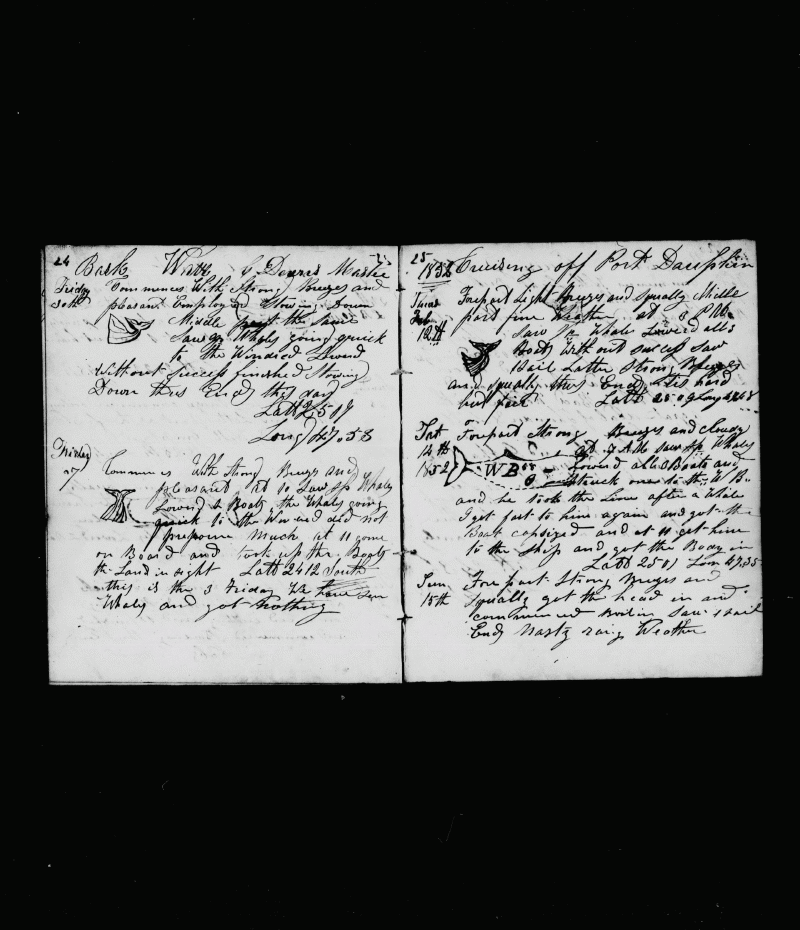 24
Bark
Friday
30th
Commences With Strong Breezes and
pleasant Employed Stowing Down
Middle part the Same
Saw Sp Whales going quick
to the Windard Lowerd
Without success finished Stowing
Down thus Ends the day
Latd 25 07
Longd 47.58
Friday
Commences With Strong Breezes and
pleasant At 10 Saw Sp Whales
Lowerd 4 Boats the Whales going
quick to the did not
much at 11 come
on Board and took up the Boats
the Land in sight Latd 2412 South
this is the 3 Friday We have seen
Whales and got Nothing
25
1852 Cruising off Port Dauphin
Feb
12th
Forepart Light Breezes and Squally Middle
part fine Weather at 3 P.M.
Saw Whale Lowerd all
Boats With out success Saw
1 Sail Latter Strong Breezes
and Squally thus Ends
Latd 25.09 Long
14th
1852
Forepart Strong Breezes and Cloudy
at 7 A.M saw Sp Whales
WB
Lowerd all Boats and
Struck one to the W B
and he took the Line after a While
I got fast to him again and got the
Boat capsized and at 11 got him
to the Ship and got the Body in
Latd 25 01 Lon 47.35
Sun
15th
Fore part Strong Breezes and
Squally got the head in and
commenced Boilin Saw 1 Sail
Ends Nasty Weather